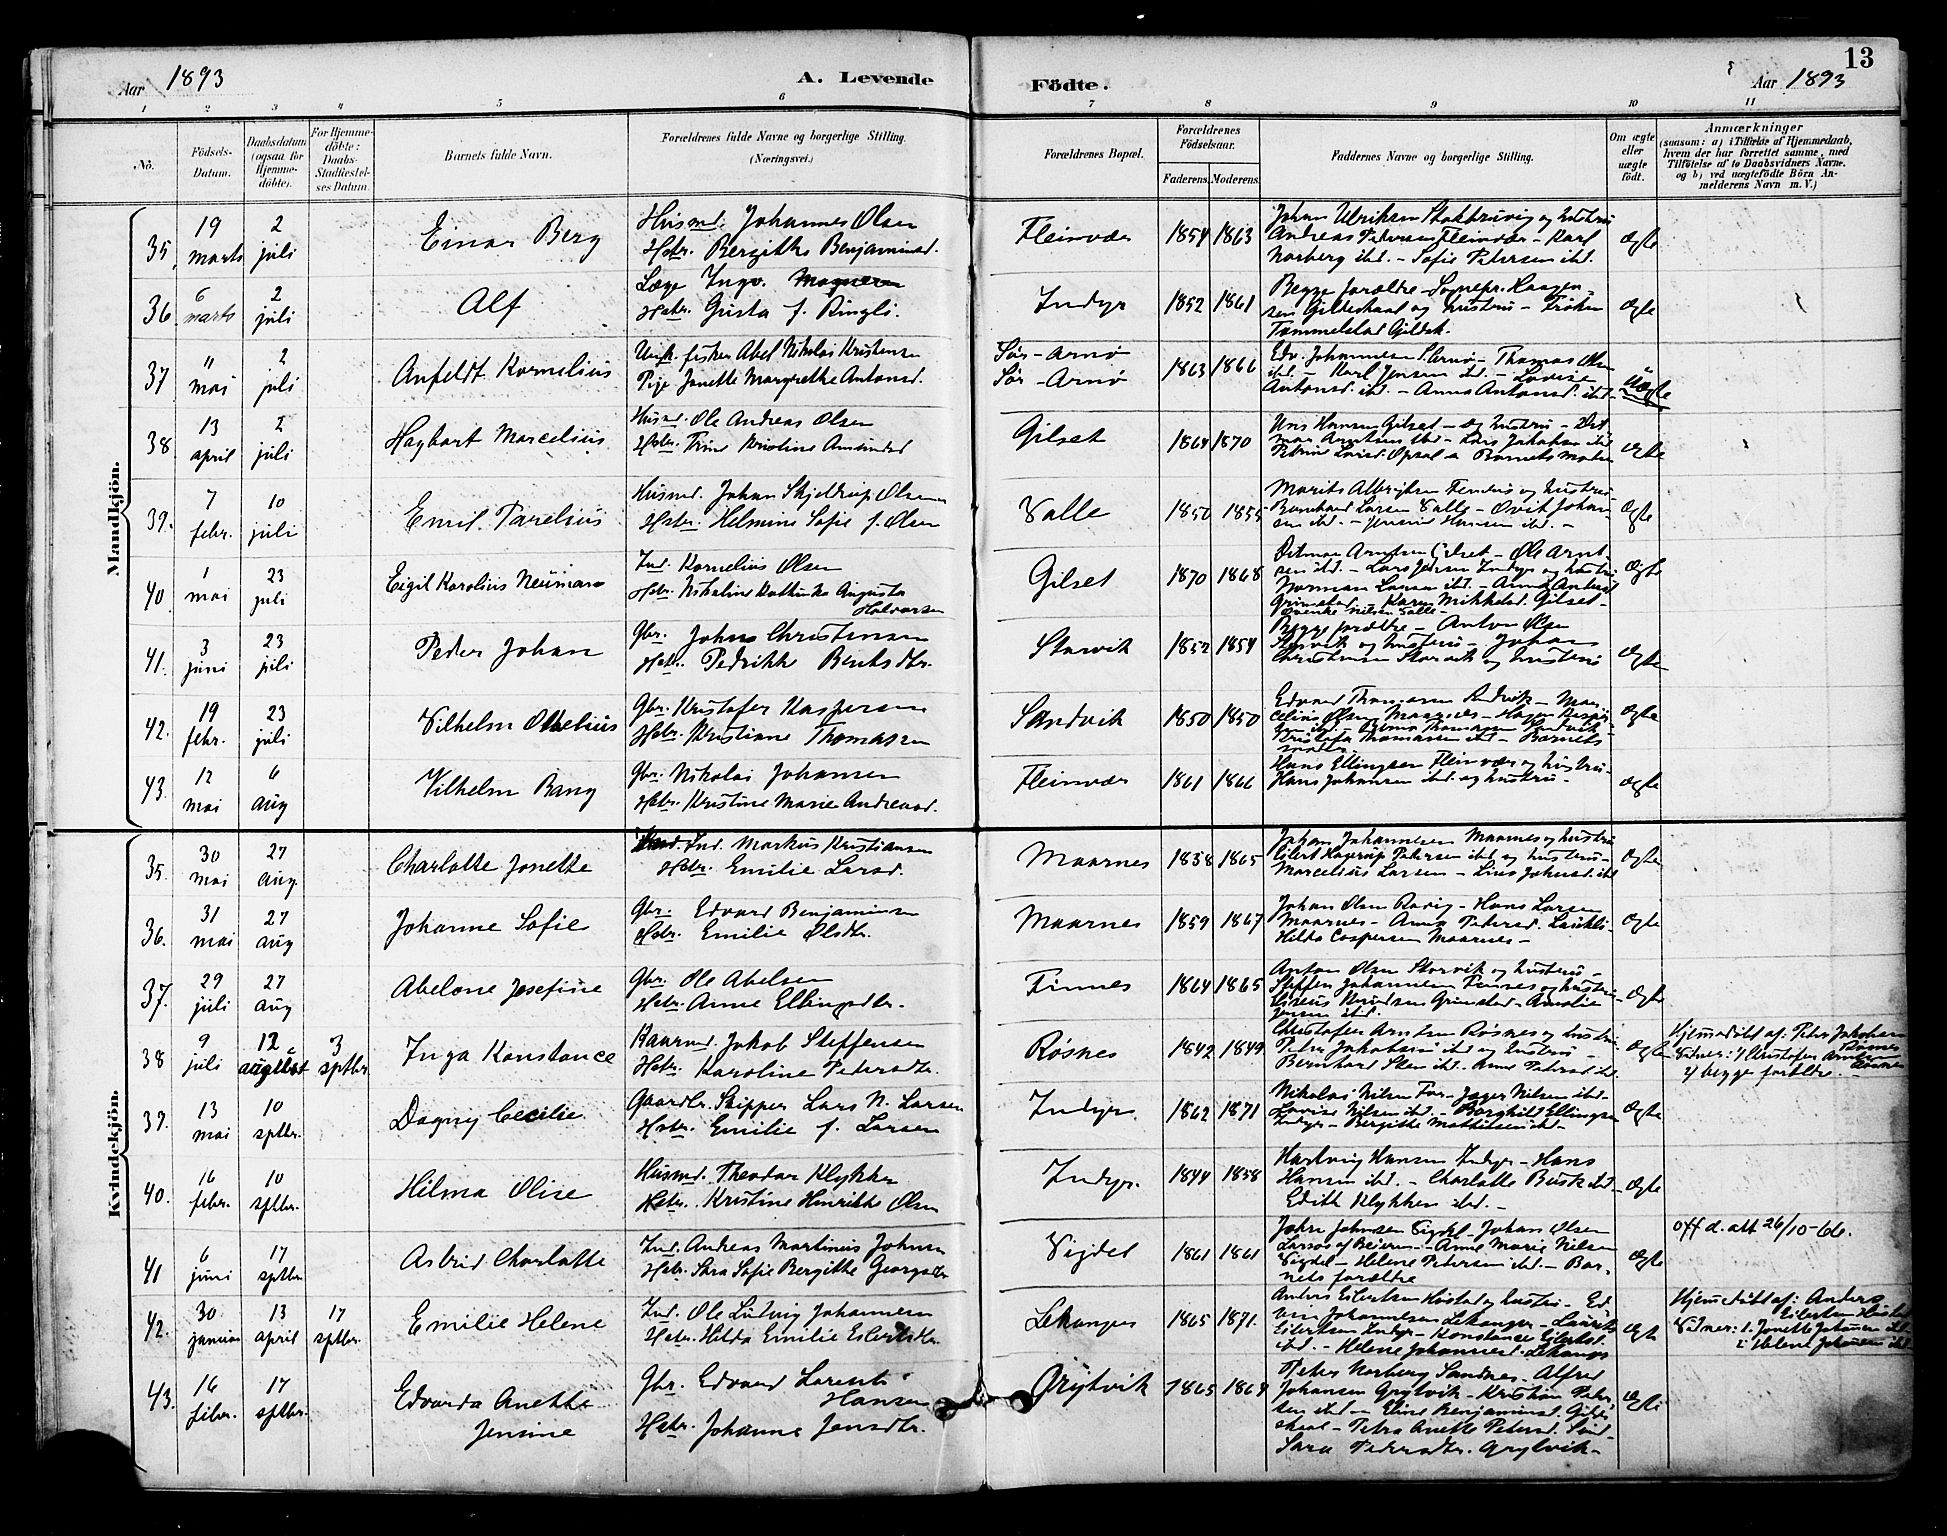 13
Aar 1893
A. Levende
Födte.
Aar 1893
1 2 3 4 5 6 7 8 9 10 11
No.
Födsels-
Datum.
Daabsdatum
(ogsaa for
Hjemme-
döbte).
For Hjemme-
döbte:
Daabs-
Stadfæstel-
ses Datum.
Barnets fulde Navn.
Forældrenes fulde Navne og borgerlige Stilling.
(Næringsvei.)
Forældrenes Bopæl.
Forældrenes
Födselsaar.
Faderens. Moderens.
Faddernes Navne og borgerlige Stilling.
Om ægte
eller
uægte
födt.
Anmærkninger
(saasom: a) i Tilfælde af Hjemmedaab,
hvem der har forrettet samme, med
Tilföielse af to Daabsvidners Navne.
og b) ved uægtefödte Börn An-
melderens Navn m. V.)
Mandkjön.
35. 19 marts 2 juli Einar Berg
Husmd. Johannes Olsen
Hstr. Bergitte Benjaminsd.
Fleinvær 1854 1863
Johan Ulriksen og hustru
Andreas Petersen Fleinvær – Karl
Norberg ibd. – Sofie Petersen ibd.
Ægte
36. 6 marts 2 juli Alf
Læge Ingv.
Hstr. Gusta f. Ringli.
Indyr 1852 1861
Begge forældre – Sognepr. Kaagen-
sen Gildeskaal og hustru – Frøken
Tommelstad Gildsk.
Ægte
37 11 mai 2 juli Anfeldt Kornelius
Ungk. fisker Abel Nikolai Kristensen
Pige Jonette Margrethe Antonsd.
Sør-Arnø
Sør-Arnø
1863 1866
Edv. Johannesen S. Arnø – Thomas Olsen
ibd. – Karl Jensen ibd. – Lovise
Antonsd. ibd. – Anna Antonsd. ibd.
Uægte
38. 13 april 2 juli Hagbart Marcelius
Husmd. Ole Andreas Olsen
Hstr. Trine Kristine Amundsd
Gilset 1864 1870
Hansen Gilset – og hustru – Dit
mar Arntsen ibd – Lars Jakobsen ibd
Petrine Larsd. Opsal – Barnets moder
Ægte
39. 7 febr. 10 juli Emil Parelius
Husmd. Johan Skjeldrup Olsen
Hstr. Helmine Sofie f. Olsen
Valle 1850 1855
Marits Albrigtsen og hustru –
Bernhard Larsen Valle – Johan-
sen ibd. – Hansen ibd. –
Ægte
40. 1 mai 23 juli Eigil Karolius Neumann
Ind. Kornelius Olsen
Hstr. Nikoline Kathinka Augusta
Halvorsen
Gilset 1870 1868
Ditmar Arntsen Gilset – Ole Arnt-
sen ibd. – Lars Jensen Indyr og hustru
Norman Larsen ibd. – Anna
Grimstad – Karen Mikkelsd. Gilset –
Nilsen Valle –
Ægte
41. 3 juni 23 juli Peder Johan
Gbr. Johns Christensen
Hstr. Pedrikke Bentsdtr.
Storvik 1852 1854
Begge forældre – Anton Olsen
Storvik og hustru – Johan
Christensen Storvik og hustru
Ægte
42. 19 febr. 23 juli Vilhelm Othelius
Gbr. Kristofer Kaspersen
Hstr. Kristiane Thomassen
Sandvik 1850 1850
Edvard Thomassen Sandvik – Mar-
celius Olsen Maarnes –
Kristofa Thomassen ibd – Barnets
moder
Ægte
43. 12 mai 6 aug Vilhelm Bang
Gbr. Nikolai Johansen
Hstr. Kristine Marie Andreasd.
Fleinvær 1861 1866
Hans Ellingsen Fleinvær og hustru –
Hans Johansen ibd. og hustru –
Ægte
Kvindekjön.
35. 30 mai 27 aug. Charlotte Jonette
Ind. Markus Kristiansen
Hstr. Emilie Larsd.
Maarnes 1858 1865
Johan Johannesen Maarnes og hustru
Eilert Hagerup Petersen ibd og hustru –
Marcelius Larsen – Lina Johnsd. ibd
Ægte
36. 31 mai 27 aug Johanne Sofie
Gbr. Edvard Benjaminsen
Hstr. Emilie Olsdtr.
Maarnes 1859 1867
Johan Olsen – Hans Larsen
Maarnes – Anna Petersd.
Hilda Caspersen Maarnes –
Ægte
37. 29 juli 27 aug Abelone Josefine
Gbr. Ole Abelsen
Hstr. Anne Ellingsdtr.
Finnes 1864 1865
Anton Olsen Storvik og hustru –
Steffen Johannesen Finnes og hustru –
Knudsen Grimstad – Amalie
Jensen ibd.
Ægte
38 9 juli 12 august 3 sptbr. Inga Konstance
Gaarmd. Jakob Steffensen
Hstr. Karoline Petersdtr.
Røsnes 1842 1849
Christofer Arntsen Røsnes og hustru
Peter Jakobsen ibd og hustru –
Bernhard Steen ibd. Anne Petersd ibd.
Ægte
Hjemmedöbt af: Peter Jakobsen
Røsnes
Vidner: 1) Christofer Arntsen
Røsnes
2) begge forældre. –
39. 13 mai 10 sptbr. Dagny Cecilie
Gaardbr. Skipper Lars N. Larsen
Hstr. Emilie f. Larsen
Indyr. 1862 1871
Nikolai Nilsen – Jager Nilsen ibd.
Lovise Nilsen ibd – Borghild Ellingsen
Indyr – Bergitte Mathilsen ibd. –
Ægte
40. 16 febr. 10 sptbr. Hilma Olise
Husmd. Theodor Klykken
Hstr. Kristine Henrikke Olsen
Indyr. 1844 1858
Hartvig Hansen Indyr – Hans
Hansen ibd. – Charlotte Busk ibd –
Edith Klykken ibd. –
Ægte
41 6 juni 17 sptbr. Astrid Charlotte
Ind. Andreas Martinus Johnsen
Hstr. Sara Sofie Bergitte Georgsdtr
Vigdel 1861 1861
John Johnsen Vigdel – Johan Olsen
Larsos af Beieren – Anne Marie Nilsen
Vigdel – Helene Petersen ibd. – Bar-
nets forældre
Ægte
off d. att 26/10-66.
42. 30 januar 13 april 17 sptbr. Emilie Helene
Ind. Ole Ludvig Johannesen
Hstr. Hilda Emilie Eilertsdtr.
Lekanger 1865 1871.
Anders Eilertsen Hustad og hustru – Ed
vin Johannesen Lekanger – Laurits
Eilertsen Indyr – Konstance Eilertsd.
ibd. – Helene Johannesd. Lekanger
Ægte
Hjemmedöbt af: Anders
Eilertsen Hustad
Vidner: 1. Jonette Johansen ibd.
2. Helene Johansen ibd.
43. 16 febr. 17 sptbr. Edvarda Anette
Jensine
Gbr. Edvard Lorents
Hansen
Hstr. Johanne Jensdtr.
Grytvik 1865 1869
Peter Norberg Sandnes – Alfred
Johansen Grytvik – Kristian Peter-
sen ibd – Eline Benjaminsd. Gilde-
skaal – Petra Anette Petersd.
Sara Pedersdtr. Grytvik –
Ægte